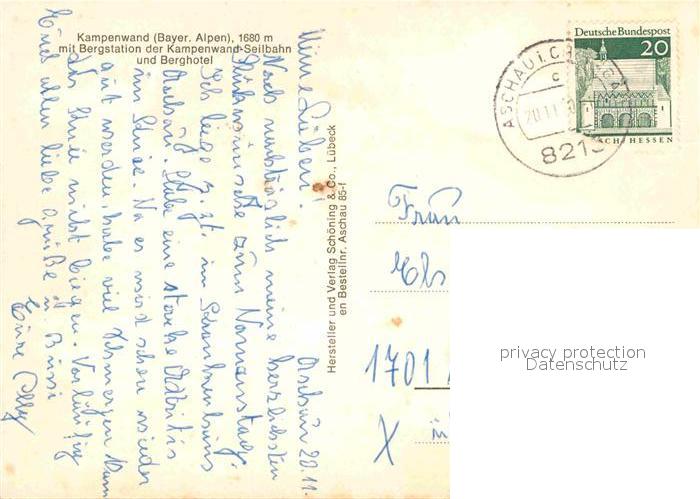 Kampenwand (Bayer. Alpen), 1680 m
mit Bergstation der Kampenwand-Seilbahn
und Berghotel
Aschau 20.11.
Meine Lieben!
Noch nachträglich meine herzlichsten
Glückwünsche zum Namenstag.
Ich liege z. Zt. im Krankenhaus
Aschau. Habe eine starke Arthritis
im Knie. Na es wird schon wieder
gut werden, habe viel Schmerzen kann
das Knie nicht biegen. Vorläufig
Euch allen liebe Grüße u. Bussi
Eure
Hersteller und Verlag Schöning & Co., Lübeck
en Bestellnr. Aschau 85-f
Deutsche Bundespost
20
LORSCH/HESSEN
ASCHAU i. CH
c
20.11.
8213
Frau
Els
1701
X
privacy protection
Datenschutz